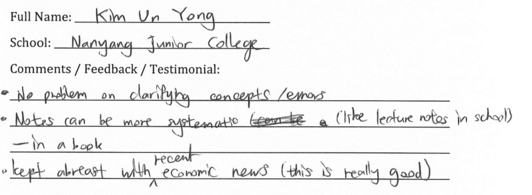 Full Name: Kim Un Yong
School: Nanyang Junior College
Comments / Feedback / Testimonial:
• No problem on clarifying concepts /errors
• Notes can be more systematic (like lecture notes in school)
— in a book
• kept abreast with recent economic news (this is really good)